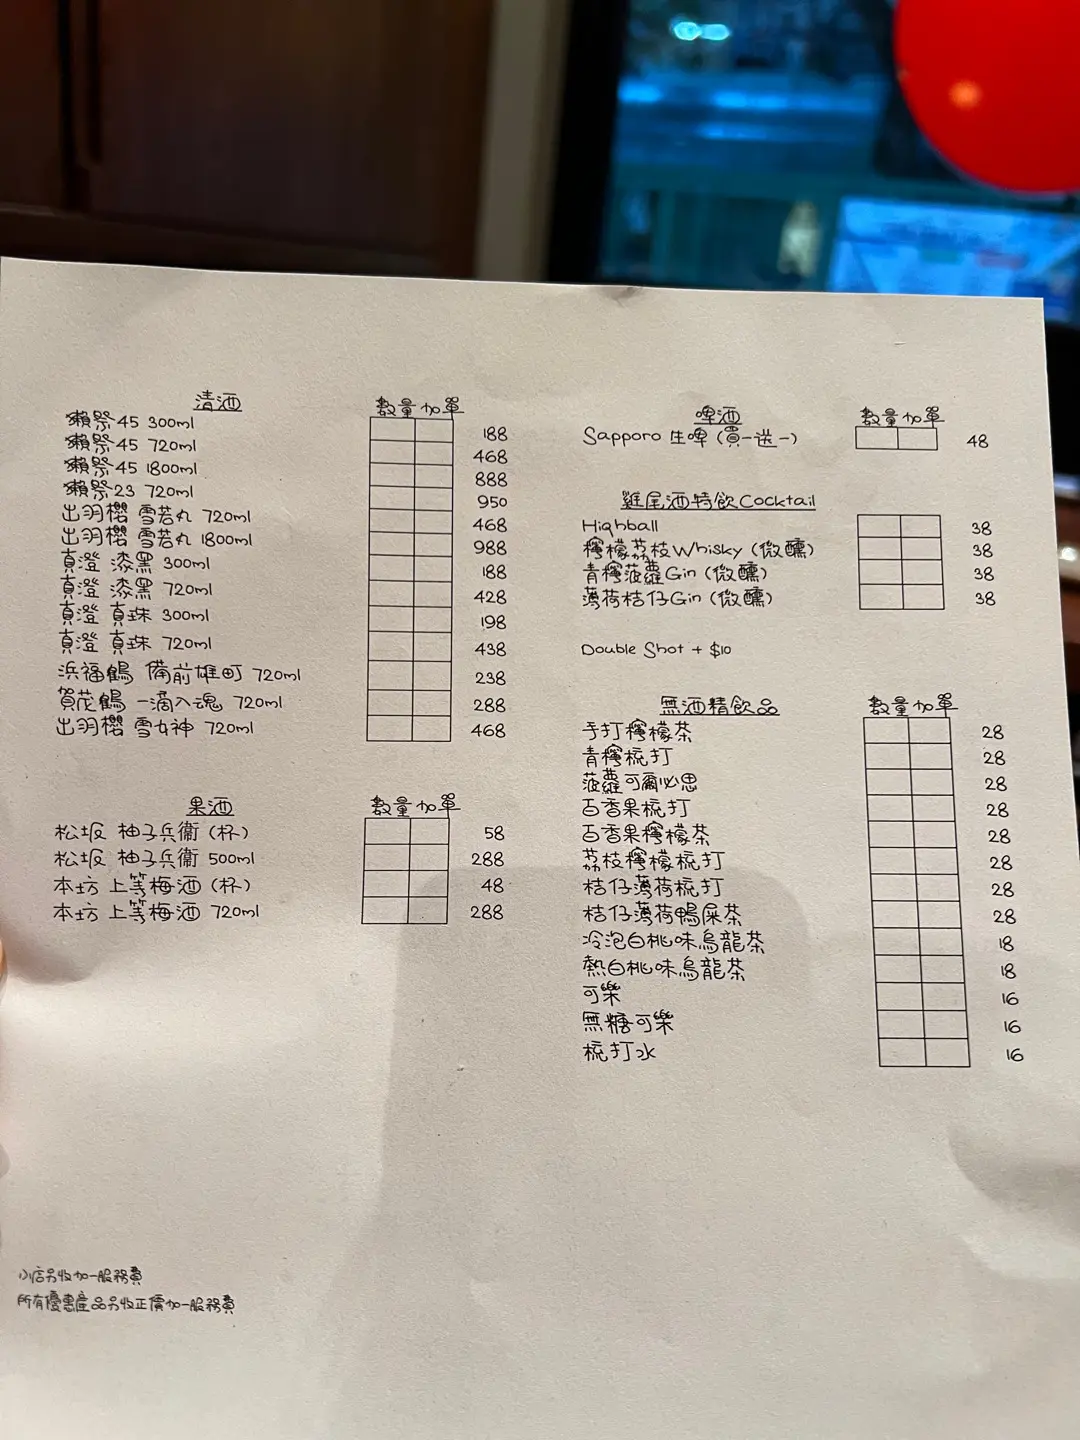 清酒
數量 加單
獺祭45 300ml 188
獺祭45 720ml 468
獺祭45 1800ml 888
獺祭23 720ml 950
出羽櫻 雪若丸 720ml 468
出羽櫻 雪若丸 1800ml 988
真澄 漆黑 300ml 188
真澄 漆黑 720ml 428
真澄 真珠 300ml 198
真澄 真珠 720ml 438
浜福鶴 備前雄町 720ml 238
賀茂鶴 一滴入魂 720ml 288
出羽櫻 雪女神 720ml 468
果酒
數量 加單
松坂 柚子兵衞 (杯) 58
松坂 柚子兵衞 500ml 288
本坊 上等梅酒 (杯) 48
本坊 上等梅酒 720ml 288
小店另收加一服務費
所有優惠產品另收正價加一服務費
啤酒
數量 加單
Sapporo 生啤 (買一送一) 48
雞尾酒特飲Cocktail
Highball 38
檸檬荔枝Whisky (微醺) 38
青檸菠蘿Gin (微醺) 38
薄荷桔仔Gin (微醺) 38
Double Shot + $10
無酒精飲品
數量 加單
手打檸檬茶 28
青檸梳打 28
菠蘿可爾必思 28
百香果梳打 28
百香果檸檬茶 28
荔枝檸檬梳打 28
桔仔薄荷梳打 28
桔仔薄荷鴨屎茶 28
冷泡白桃味烏龍茶 18
熱白桃味烏龍茶 18
可樂 16
無糖可樂 16
梳打水 16